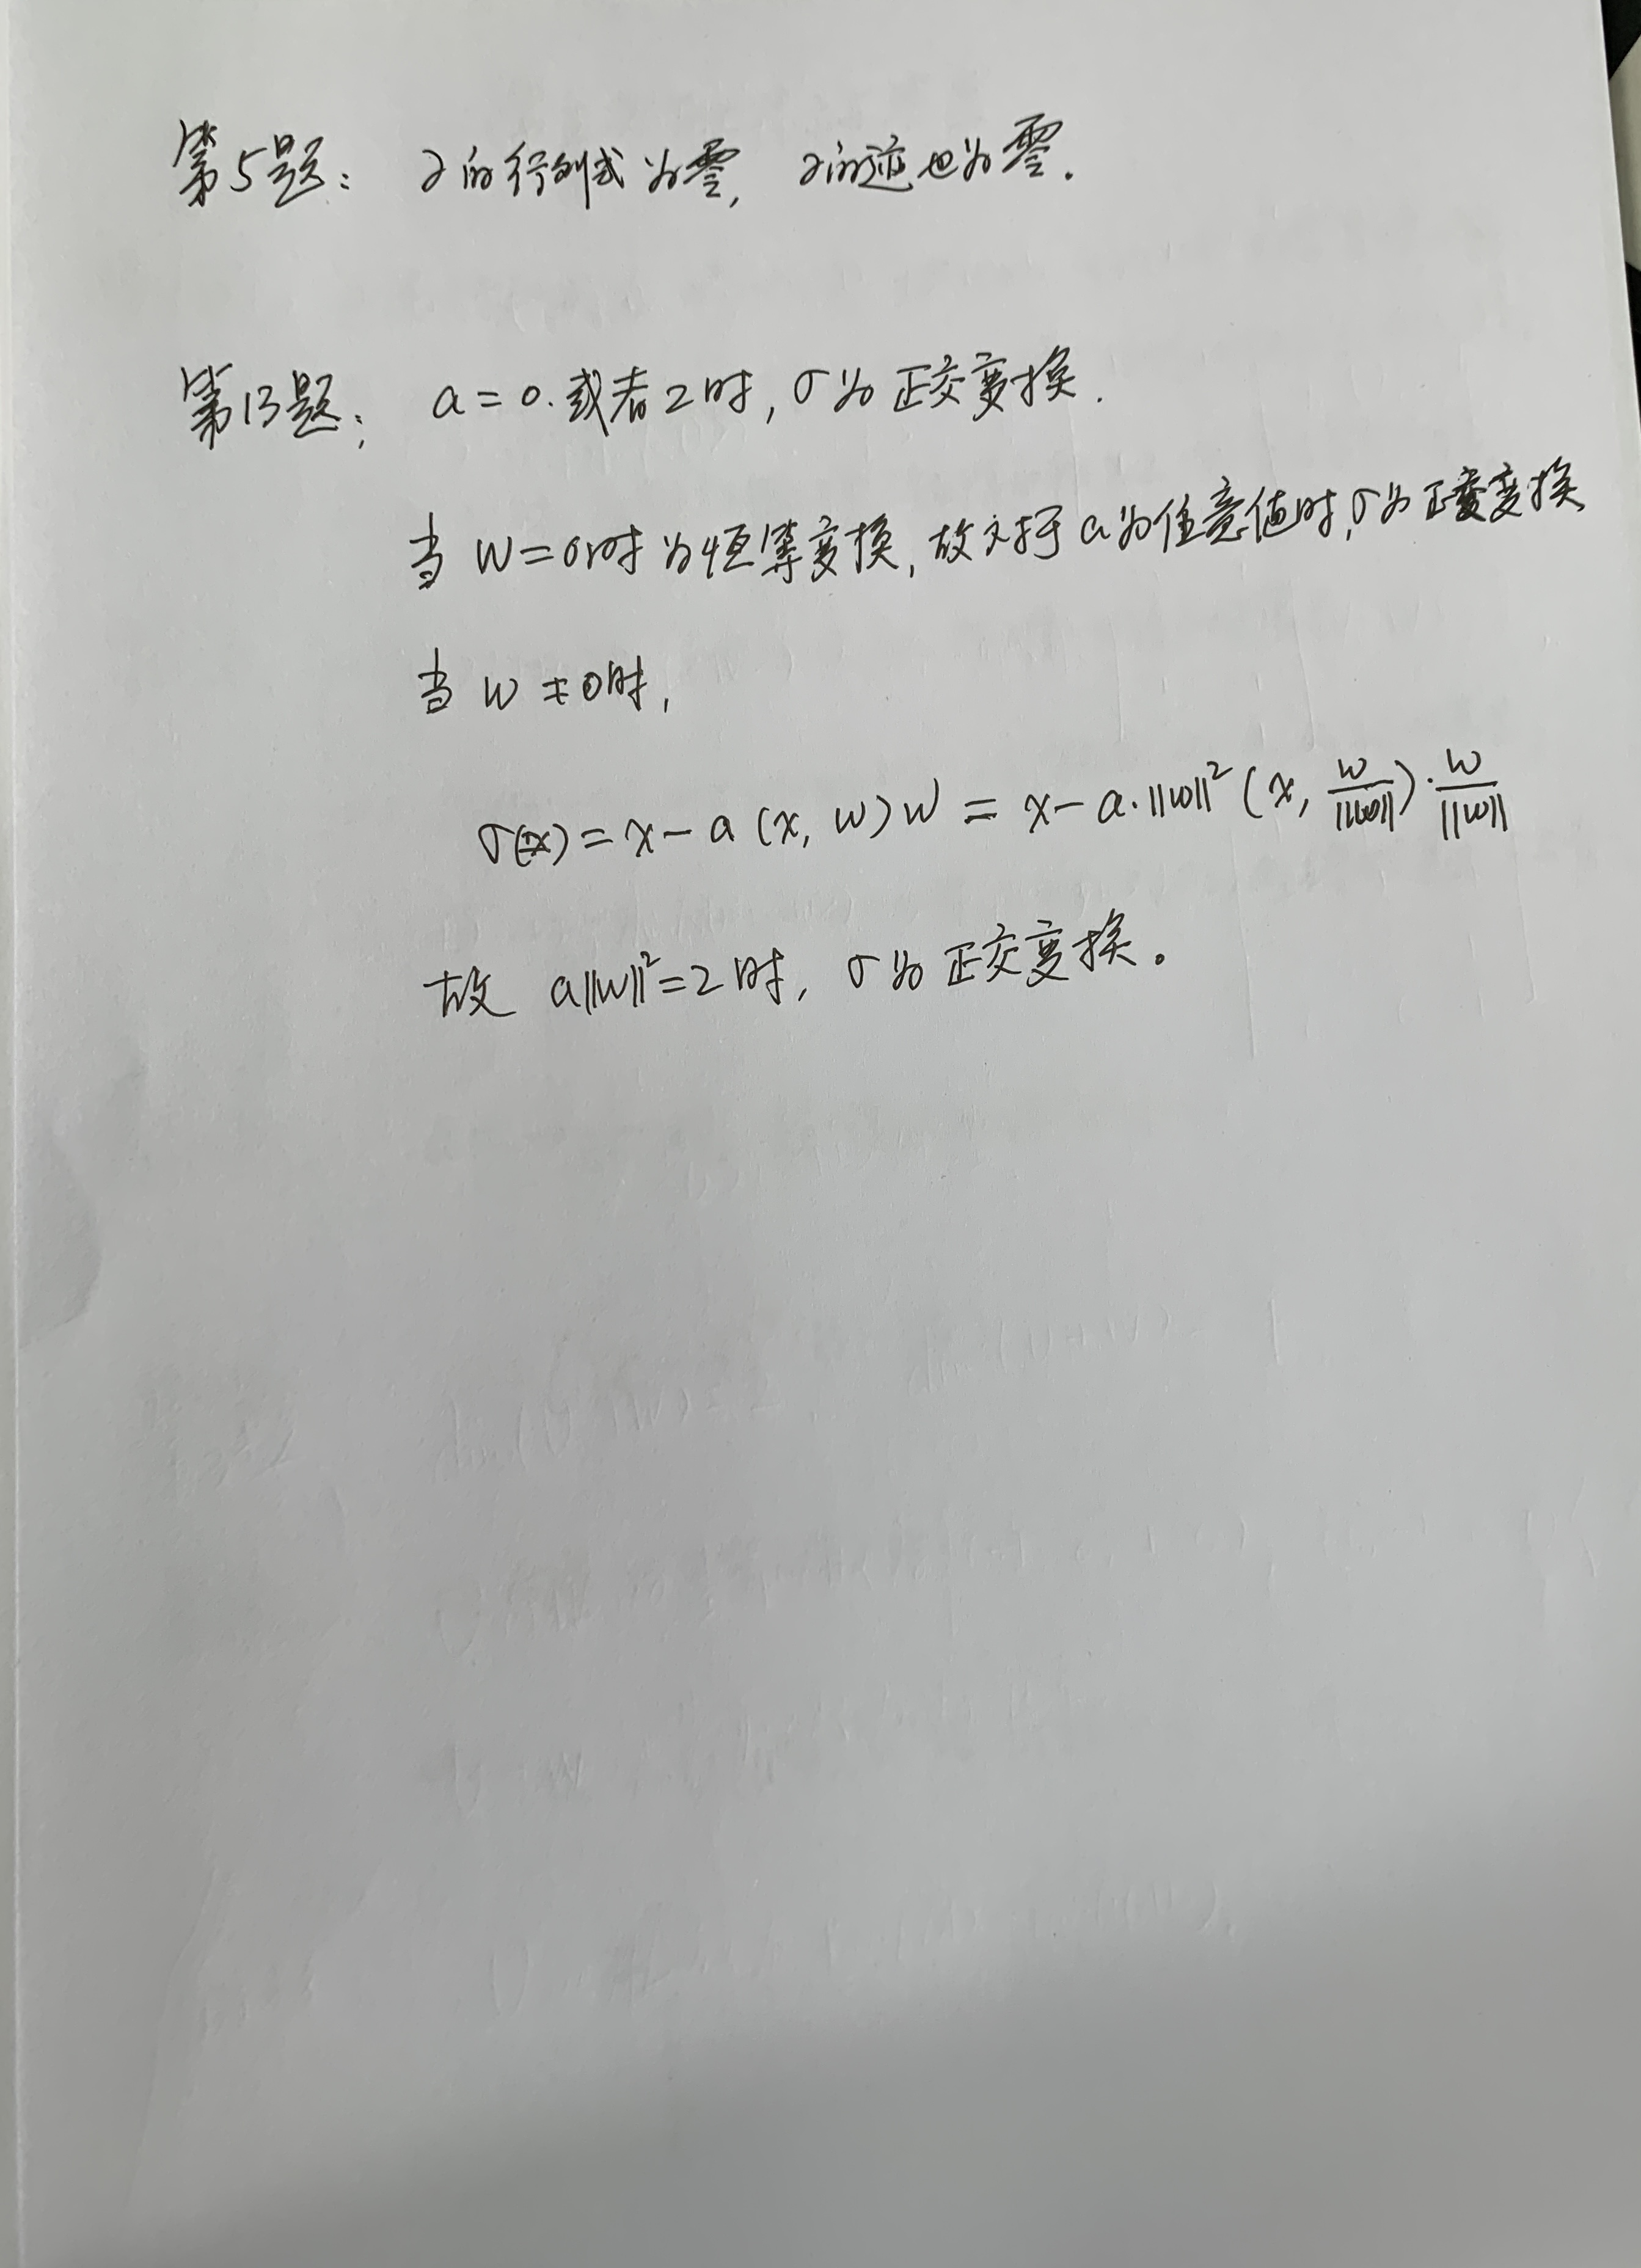 第5题: ∂的行列式为零, ∂的迹也为零.
第13题: a=0.或者2时, σ为正交变换.
当 w=0时为恒等变换, 故对于a为任意值时, σ为正交变换
当 w≠0时,
σ(x)=x-a(x, w)w = x-a·||w||²(x, w/||w||)·w/||w||
故 a||w||²=2时, σ为正交变换。